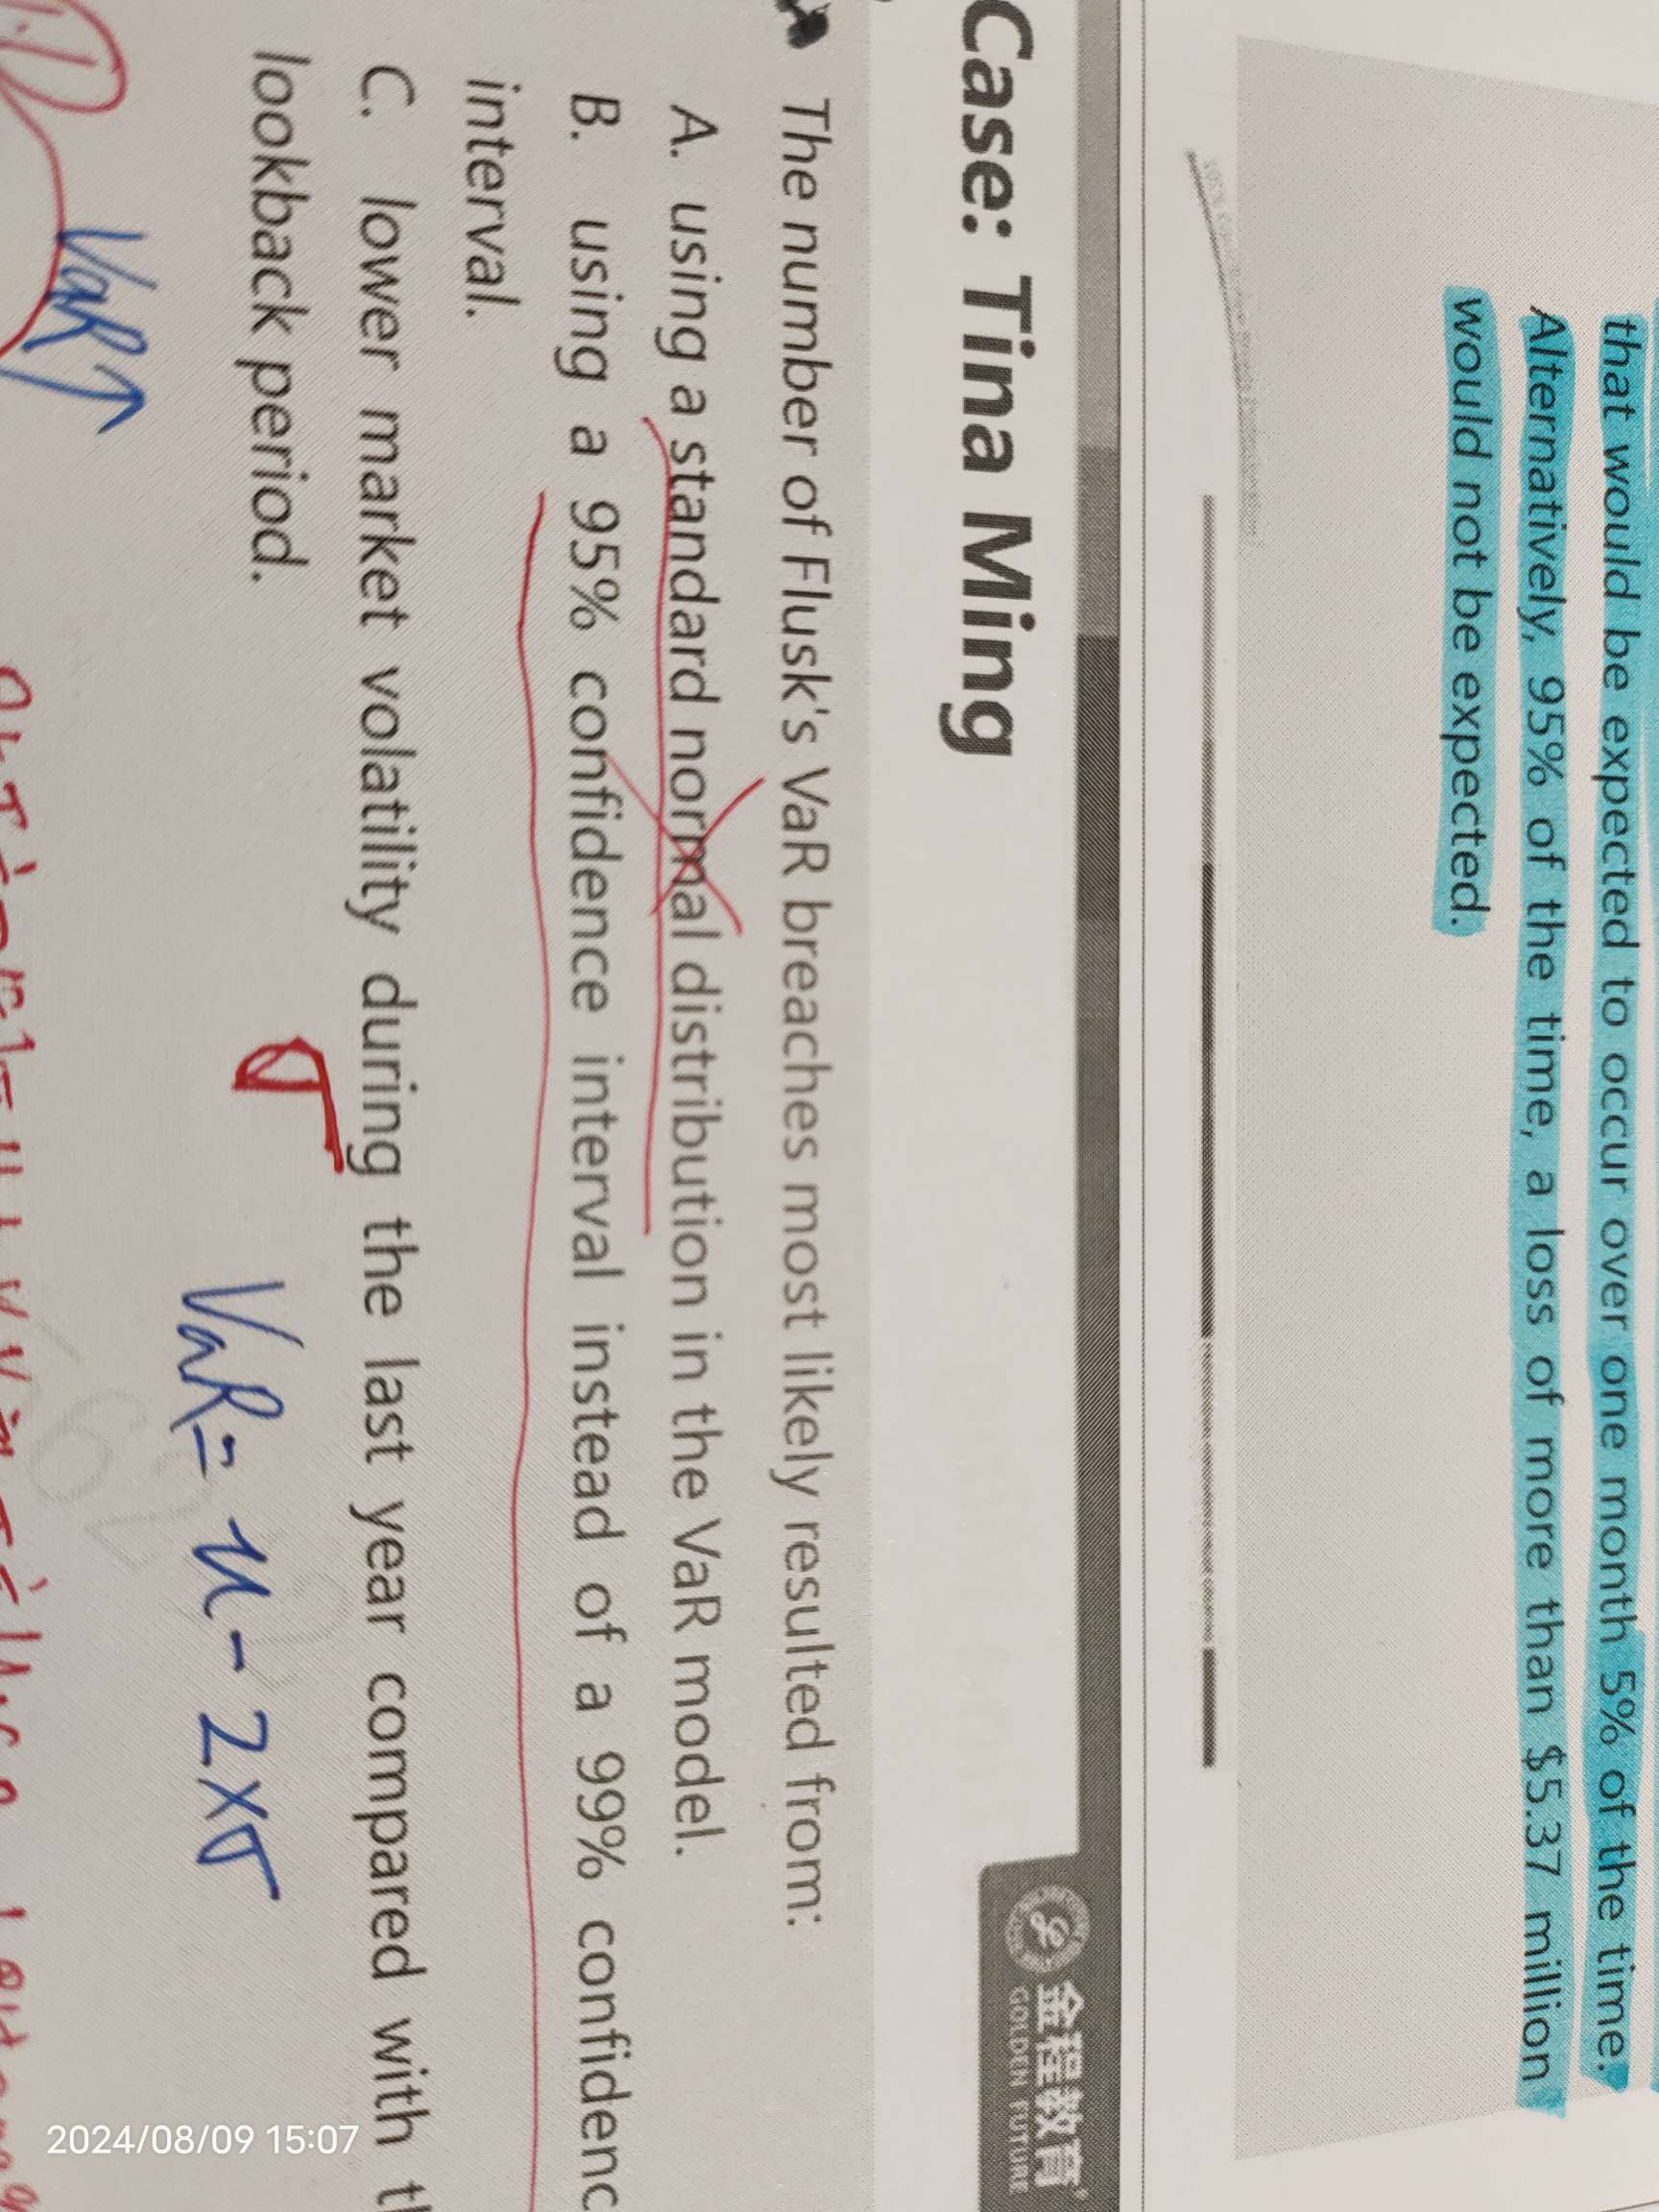 that would be expected to occur over one month 5% of the time.
Alternatively, 95% of the time, a loss of more than $5.37 million
would not be expected.
金程教育
GOLDEN FUTURE
Case: Tina Ming
The number of Flusk's VaR breaches most likely resulted from:
A. using a standard normal distribution in the VaR model.
B. using a 95% confidence interval instead of a 99% confidenc
interval.
C. lower market volatility during the last year compared with th
lookback period.
σ
VaR = u - 2×σ
VaR↑
2024/08/09 15:07